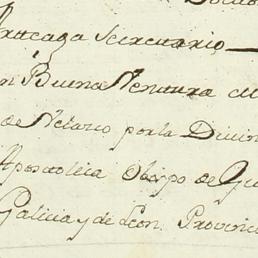 Arteaga Secretario
n Buena Ventura
de Nelario por la Divin
Apostolica Obispo de Gu
Galicia y de Leon. Provinc